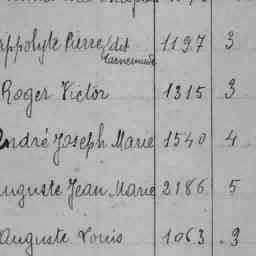 Hippolyte Pierre, dit 1197 3
Roger Victor 1315 3
André Joseph Marie 1540 4
Auguste Jean Marie 2186 5
Auguste Louis 1063 3